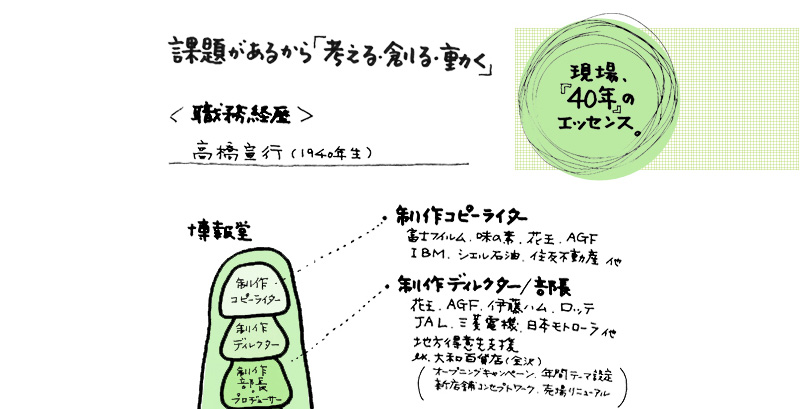 課題があるから「考える・創る・動く」
現場、
『40年』の
エッセンス。
＜職務経歴＞
高橋宣行（1940年生）
博報堂
・制作コピーライター
富士フイルム、味の素、花王、AGF
IBM、シェル石油、住友不動産 他
・制作ディレクター/部長
花王、AGF、伊藤ハム、ロッテ
JAL、三菱電機、日本モトローラ他
地方得意先支援
ex.大和百貨店（金沢）
（オープニングキャンペーン、年間テーマ設定
新店舗コンセプトワーク、売場リニューアル）
制作
コピーライター
制作
ディレクター
制作
部長
・
プロデューサー